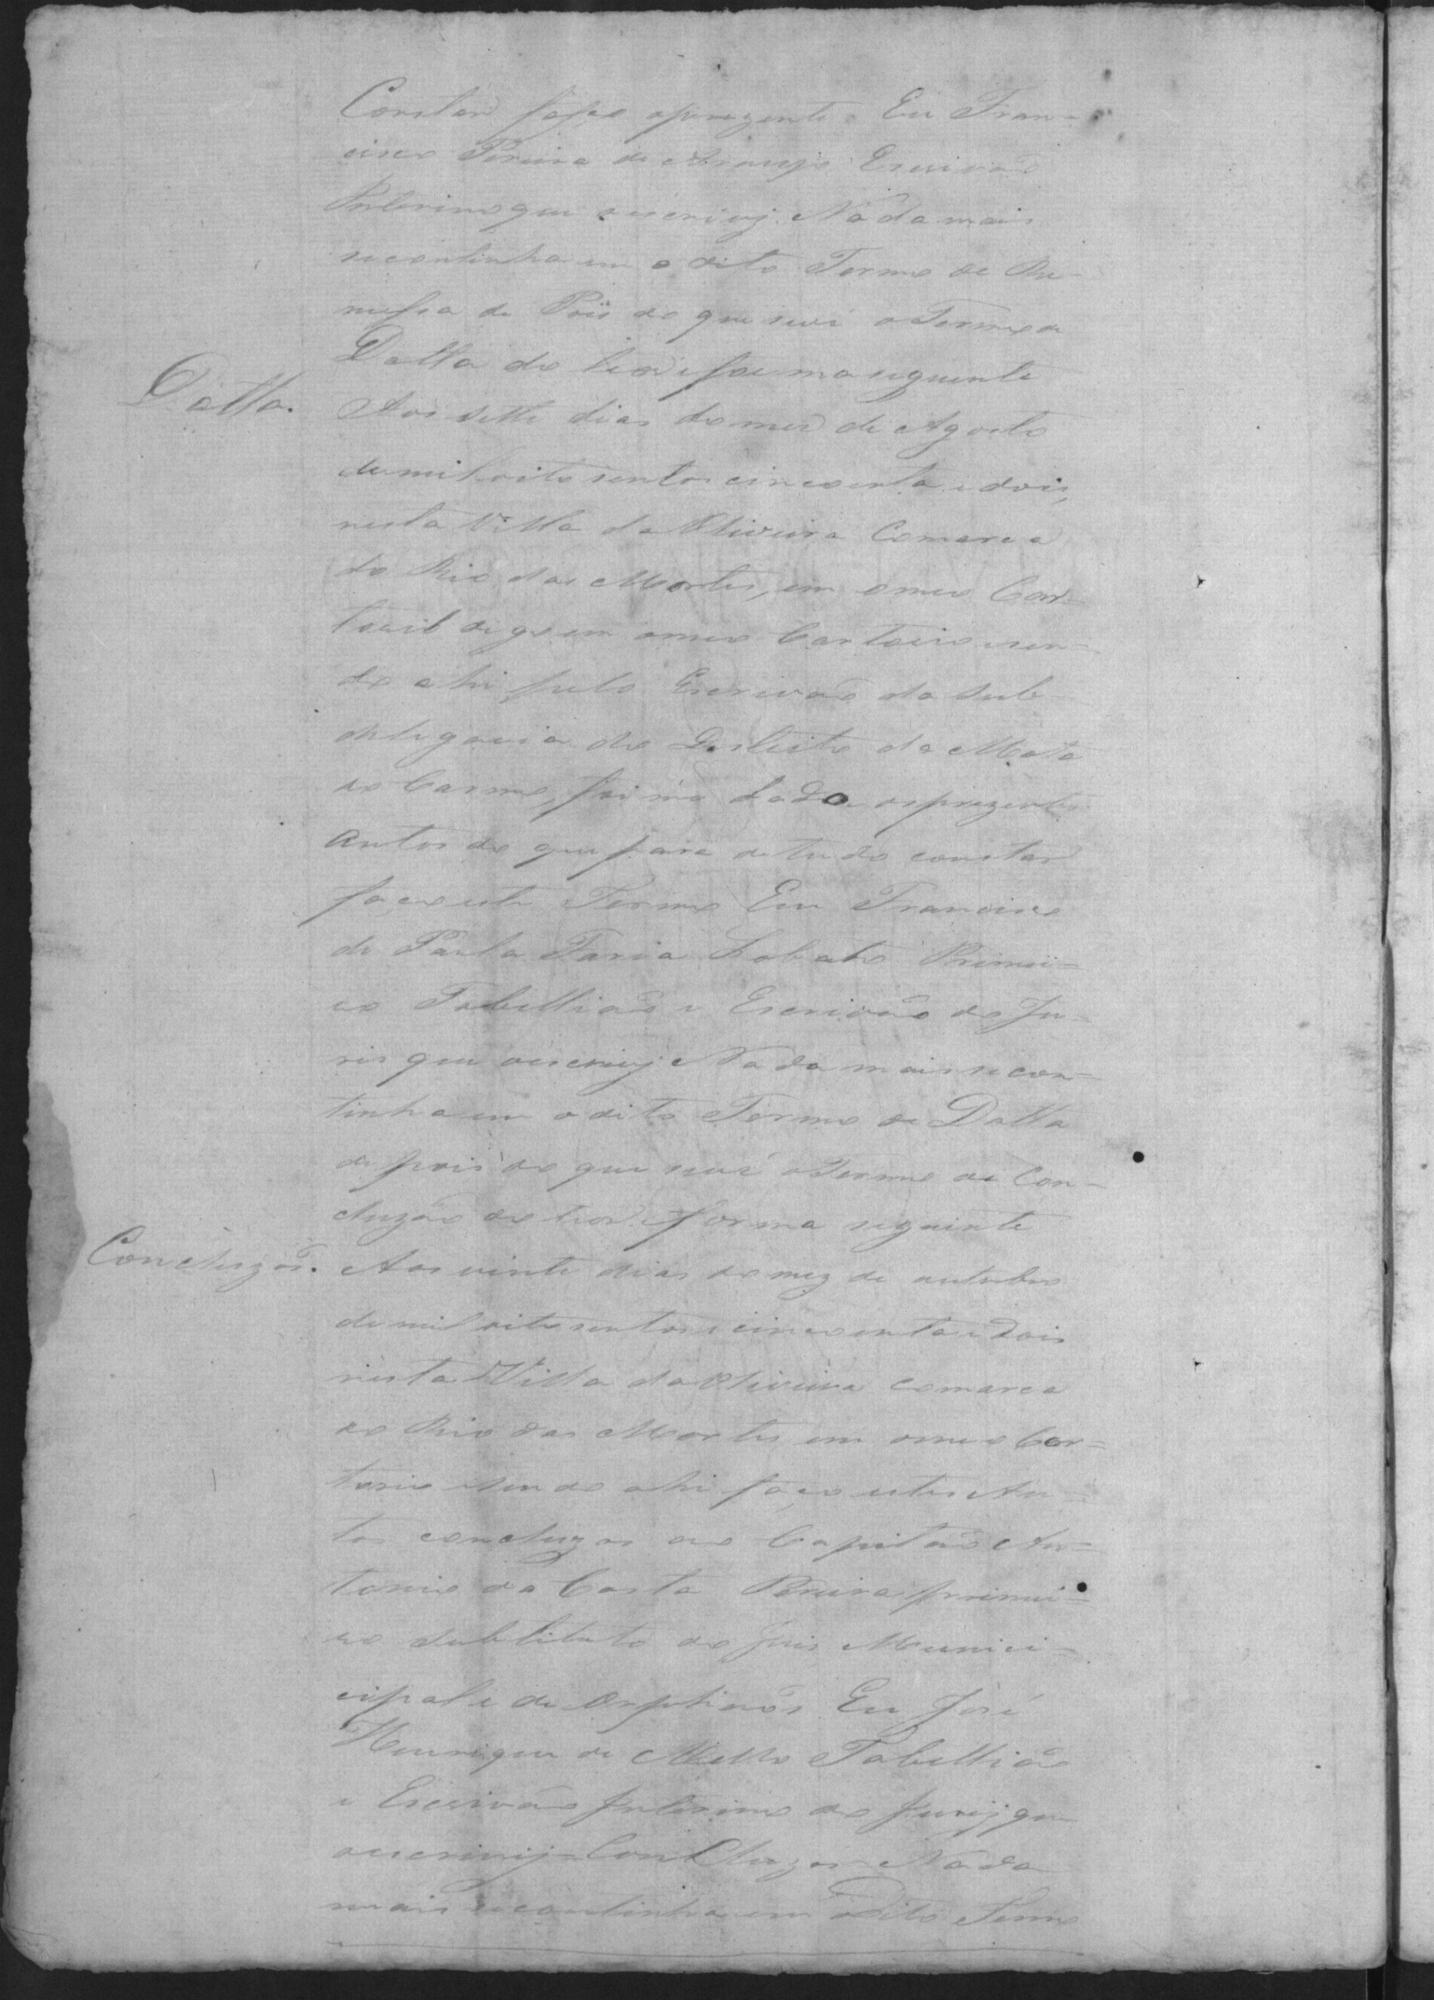 Constar faço aprezente. Eu Fran-
cisco Pereira de Araujo Escrivaõ
Interino que oescrivij. Nada mais
secontinha em o dito Termo de Re-
messa de Pois do que sevê oTermo de
Datta do teor e forma seguinte
Datta.
Aos sette dias do mez de Agosto
de mil oito sentos cincoenta e dois,
nesta Villa da Oliveira Comarca
do Rio das Mortes, em o meo Car-
digo em omeo Cartorio e sen-
do ahi pelo Escrivaõ da Sub-
delegacia do Destrito da Mata
do Carmo, foi me dado osprezentes
autos do que para de tudo constar
faço este Termo Eu Francisco
de Paula Faria Lobato Primei-
ro Tabelliaõ e Escrivaõ do Ju-
ris que oescrivij Nada mais secon-
tinha em o dito Termo de Datta
de pois do que sevê oTermo de Con-
cluzaõ do teor e forma seguinte
Concluzaõ.
Aos vinte dias do mez de outubro
de mil oito sentos e cincoenta e dois
nesta Villa da Oliveira comarca
do Rio das Mortes em omeo Car-
torio e sendo ahi faço estes Au-
tos concluzos ao Capitaõ An-
tonio da Costa Pereira primei-
ro Substituto do Juis Munici-
cipal e de Orphaõs Eu José
Henrique de Mello Tabelliaõ
e Escrivaõ Interino do Jurij que
oescrivij = Concluzos = Nada
mais secontinha em o Dito Termo